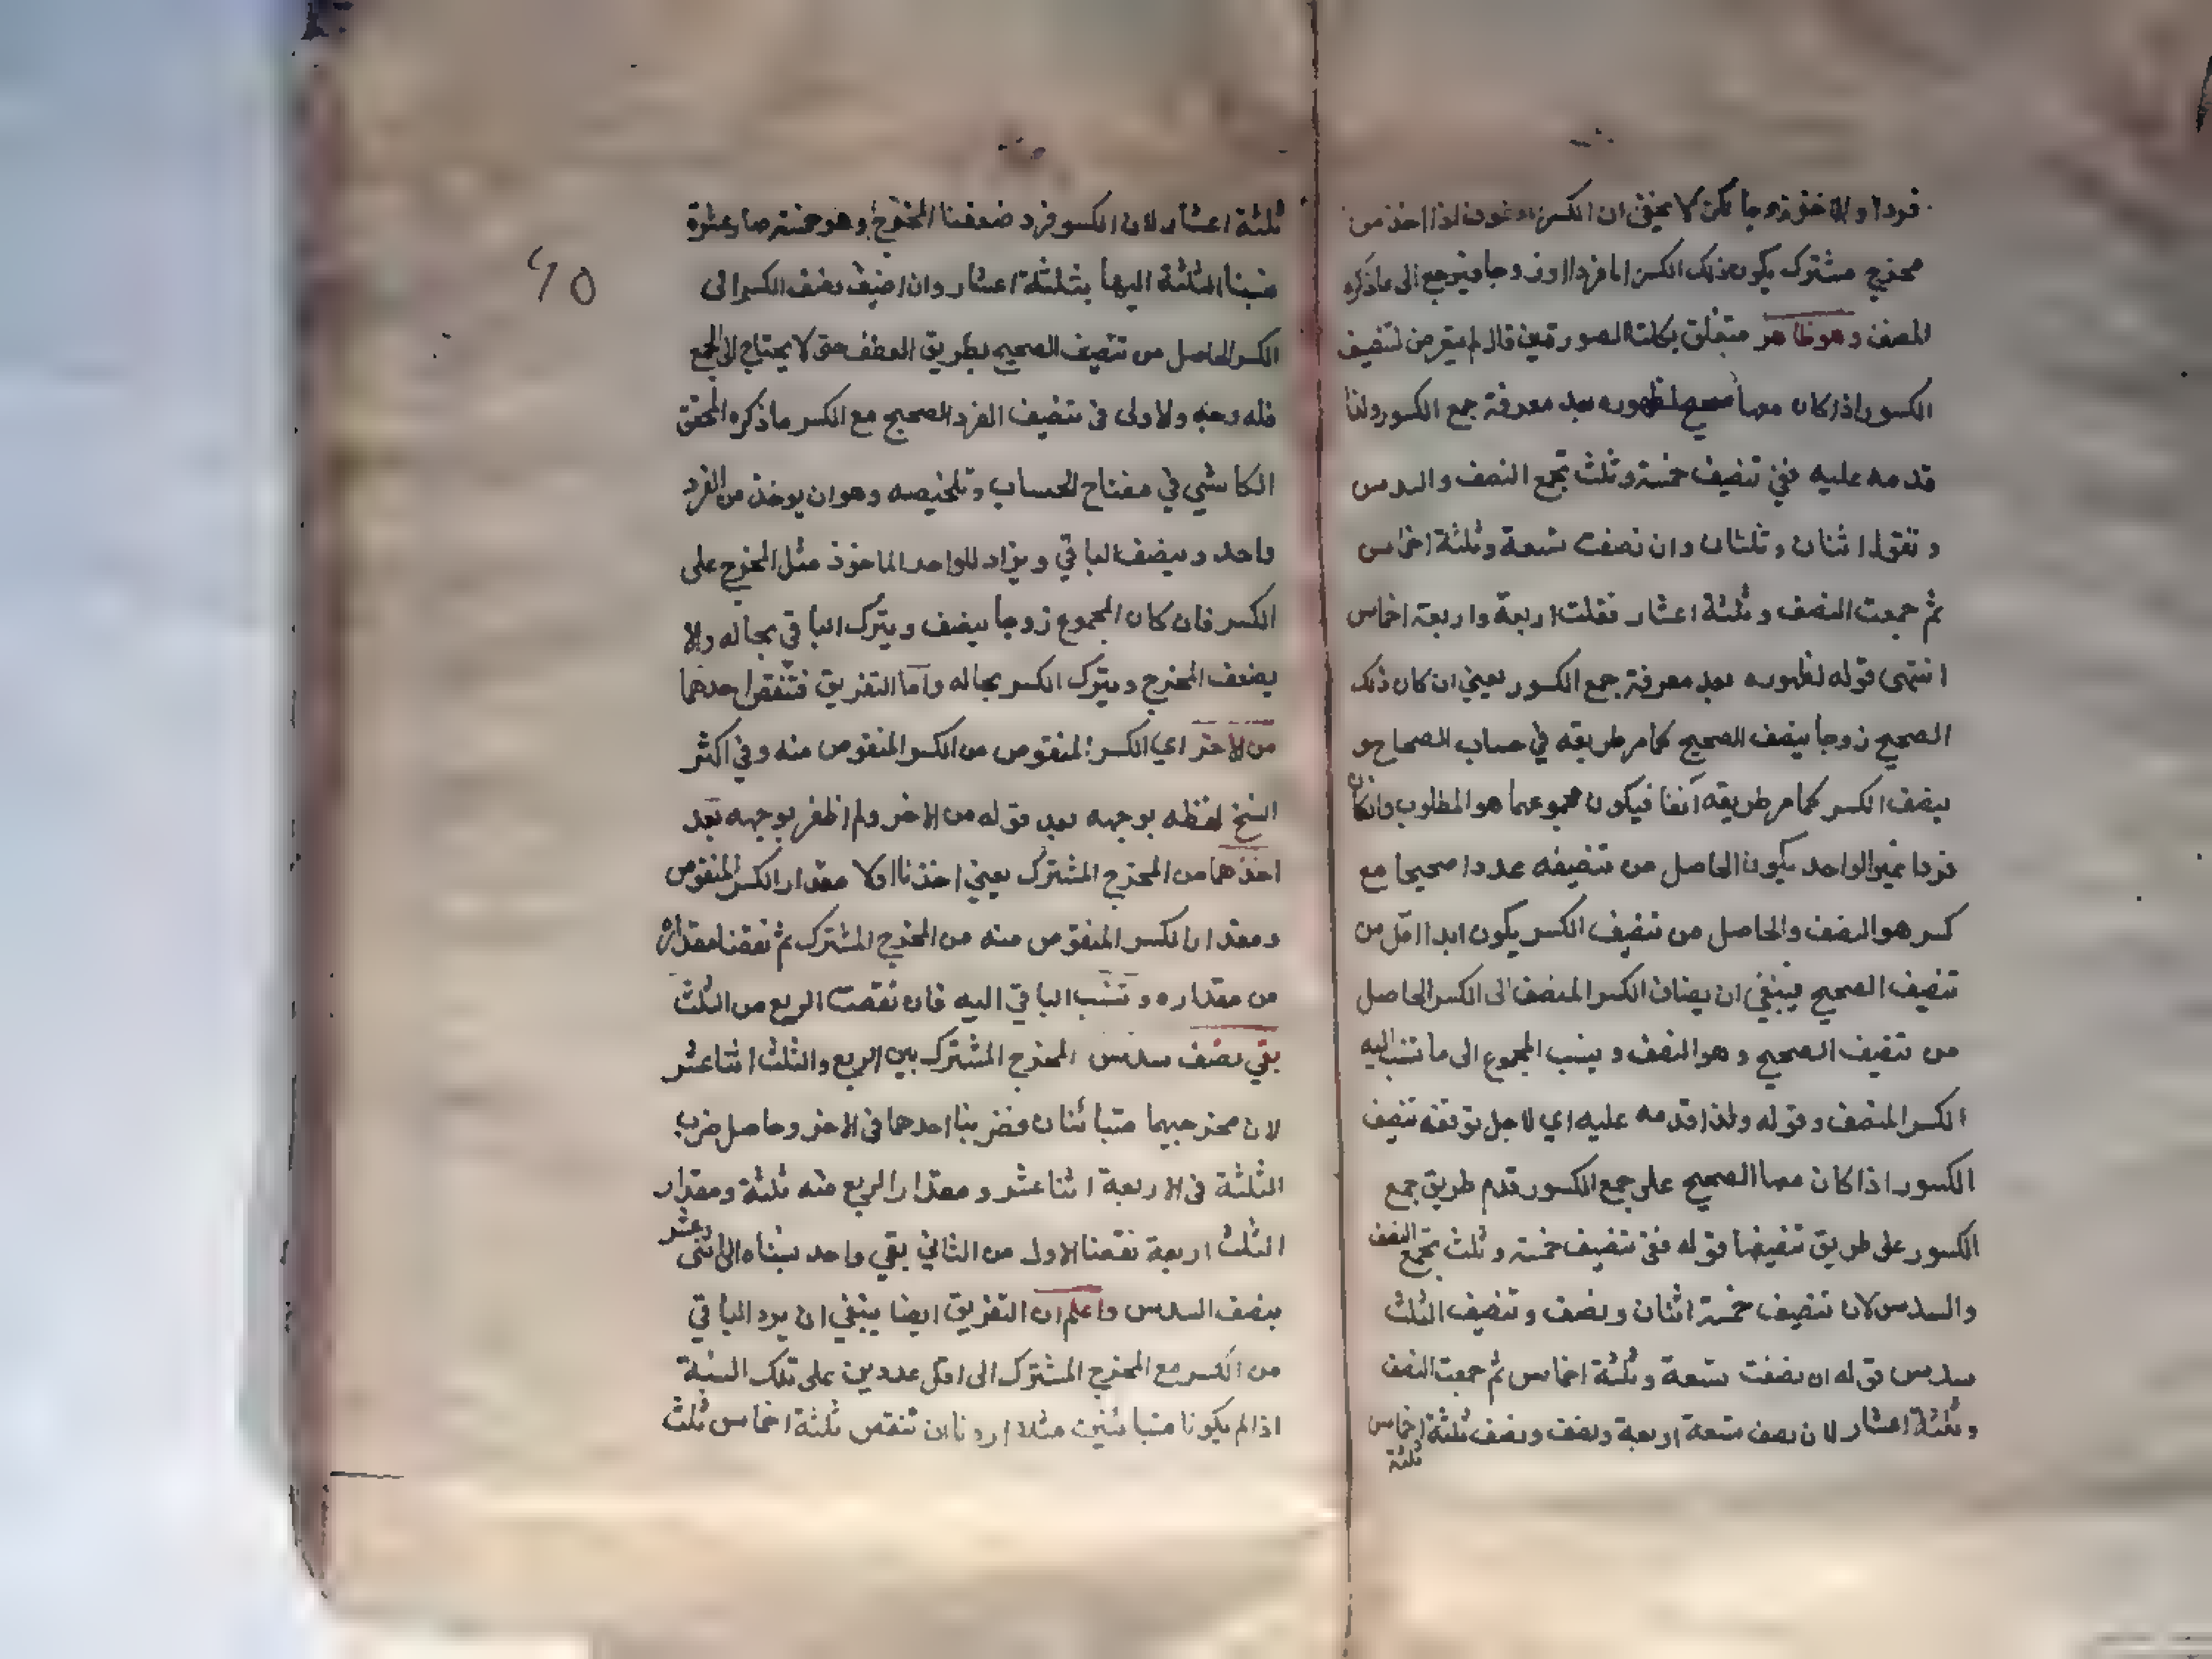 فردا والاخر زوجا لكن لا يخفى ان الكسر اذا اخذ من
مخرج مشترك يكون ذلك الكسر اما فردا او زوجا فيرجع الى ما ذكره
المصنف وهو ظاهر متعلق بكلتا الصورتين قال لم يتعرض لتنصيف
الكسور اذا كان معها صحيح لظهوره بعد معرفة جمع الكسور ولذا
قدمه عليه ففي تنصيف خمسة وثلث تجمع النصف والسدس
وتقول اثنان وثلثان وان نصفت تسعة وثلثة اخماس
ثم جمعت النصف وثلثة اعشار فقلت اربعة واربعة اخماس
انتهى قوله لظهوره بعد معرفة جمع الكسور يعني ان كان ذلك
الصحيح زوجا ينصف الصحيح كما مر طريقه في حساب الصحاح و
ينصف الكسر كما مر طريقه آنفا فيكون مجموعهما هو المطلوب وان كان
فردا غير الواحد يكون الحاصل من تنصيفه عددا صحيحا مع
كسر هو النصف والحاصل من تنصيف الكسر يكون ابدا اقل من
تنصيف الصحيح فينبغي ان يضاف الكسر المنصف الى الكسر الحاصل
من تنصيف الصحيح وهو النصف وينسب المجموع الى ما تنسب اليه
الكسر المنصف وقوله ولذا قدمه عليه اي لاجل توقفه تنصيف
الكسور اذا كان معها الصحيح على جمع الكسور قدم طريق جمع
الكسور على طريق تنصيفها قوله ففي تنصيف خمسة وثلث تجمع النصف
والسدس لان تنصيف خمسة اثنان ونصف وتنصيف الثلث
سدس قوله ان نصفت تسعة وثلثة اخماس ثم جمعت النصف
وثلثة اعشار لان نصف تسعة اربعة ونصف ونصف ثلثة اخماس
ثلثة
ثلثة اعشار لان الكسور فرد ضعفنا المخرج وهو خمسة صار عشرة
نسبنا الثلثة اليها بثلثة اعشار وان اضيف نصف الكسر الى
الكسر الحاصل من تنصيف الصحيح بطريق العطف حتى لا يحتاج الى الجمع
فله وجه والاولى في تنصيف الفرد الصحيح مع الكسر ما ذكره المحقق
الكاشي في مفتاح الحساب وتلخيصه وهو ان يوخذ من الفرد
واحد وينصف الباقي ويزاد للواحد الماخوذ مثل المخرج على
الكسر فان كان المجموع زوجا ينصف ويترك الباقي بحاله والا
يضعف المخرج ويترك الكسر بحاله واما التفريق فتنقص احدهما
من الاخر اي الكسر المنقوص من الكسر المنقوص منه وفي اكثر
النسخ لفظه بوجهه بعد قوله من الاخر ولم اظفر بوجهه بعد
اخذهما من المخرج المشترك يعني اخذنا اولا مقدار الكسر المنقوص
ومقدار الكسر المنقوص منه من المخرج المشترك ثم نقصنا مقداره
من مقداره وتنسب الباقي اليه فان نقصت الربع من الثلث
بقي نصف سدس المخرج المشترك بين الربع والثلث اثناعشر
لان مخرجيهما متبائنان فضربنا احدهما في الاخر وحاصل ضرب
الثلثة في الاربعة اثناعشر ومقدار الربع منه ثلثة ومقدار
الثلث اربعة نقصنا الاول من الثاني بقي واحد نسبناه الى اثنى عشر
بنصف السدس واعلم ان التفريق ايضا ينبغي ان يرد الباقي
من الكسر مع المخرج المشترك الى اقل عددين على تلك النسبة
اذا لم يكونا متبائنين مثلا اردنا ان تنقص ثلثة اخماس ثلث